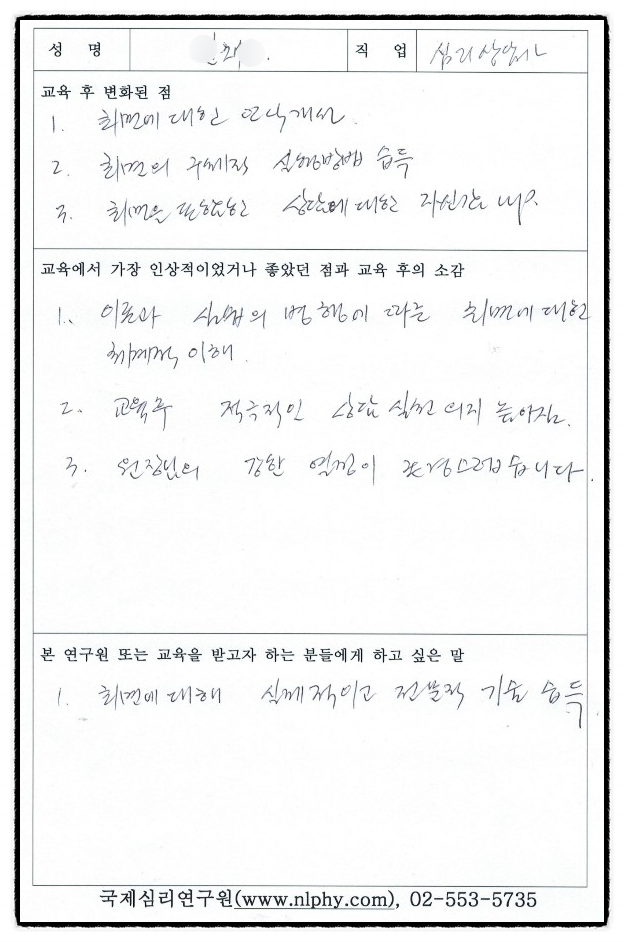 성 명 직 업 심리상담사
교육 후 변화된 점
1. 최면에 대한 인식개선.
2. 최면의 구체적 실행방법 습득
3. 최면을 포함한 상담에 대한 자신감 up.
교육에서 가장 인상적이었거나 좋았던 점과 교육 후의 소감
1. 이론과 실습의 병행에 따른 최면에 대한
체계적 이해.
2. 교육후 적극적인 상담 실천 의지 높아짐.
3. 원장님의 강한 열정이 존경스러웠습니다.
본 연구원 또는 교육을 받고자 하는 분들에게 하고 싶은 말
1. 최면에 대해 실제적이고 전문적 기술 습득
국제심리연구원(www.nlphy.com), 02-553-5735